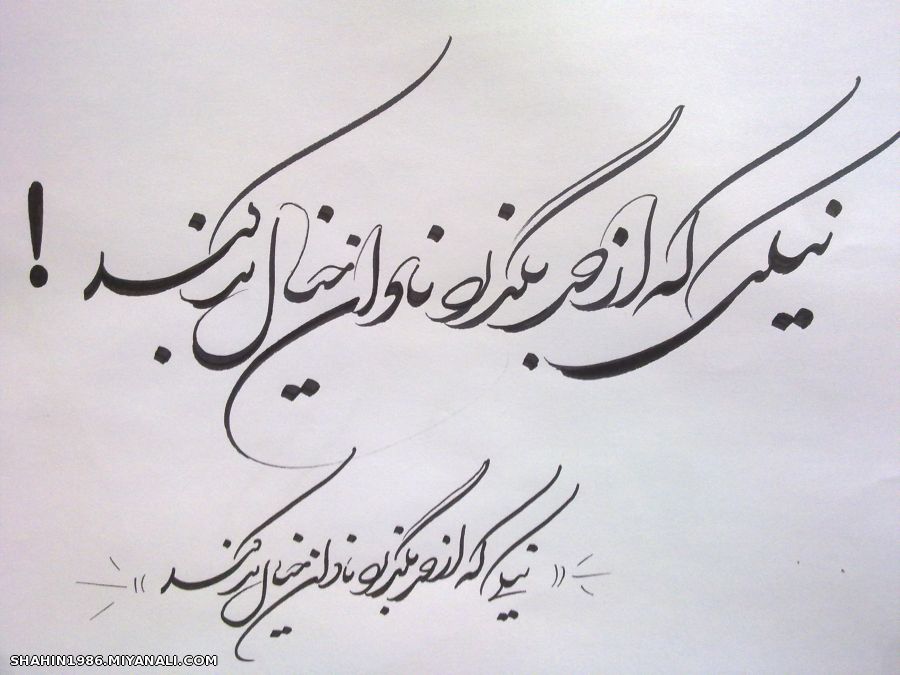 نیکی که از حد بگذرد نادان خیال بد کند !
«نیکی که از حد بگذرد نادان خیال بد کند»
SHAHIN1986.MIYANALI.COM